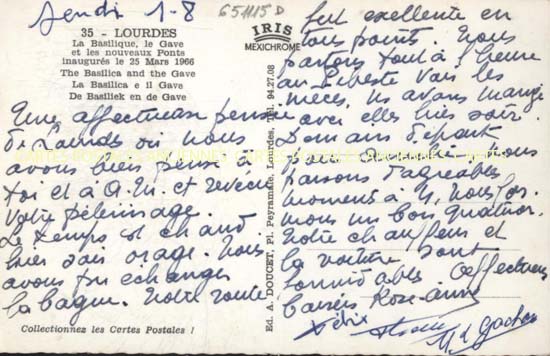 Jeudi 1-8
651115 D
35 - LOURDES
La Basilique, le Gave
et les nouveaux Ponts
inaugurés le 25 Mars 1966
The Basilica and the Gave
La Basilica e il Gave
De Basiliek en de Gave
IRIS
MEXICHROME
Une affectueuse pensée
de Lourdes où nous
avons bien pensé à
toi et à A.M. et revécu
votre pélerinage.
Le temps est chaud
hier soir orage. Nous
avons pu échanger
la bague. Notre route
Collectionnez les Cartes Postales !
Ed. A. DOUCET, Pl. Peyramale, Lourdes, Tél. 94.27.08
fut excellente en
tous point. Nous
partons tout à l'heure
au voir les
nièces, ns avons mangé
avec elles hier soir.
Demain départ
pour nous
passons d'agréables
moments à 4, nous for-
mons un bon quatuor.
Notre chauffeur et
la voiture sont
formidables. Affectueux
baisers Rose-Anne
Félix
M. et Gaston